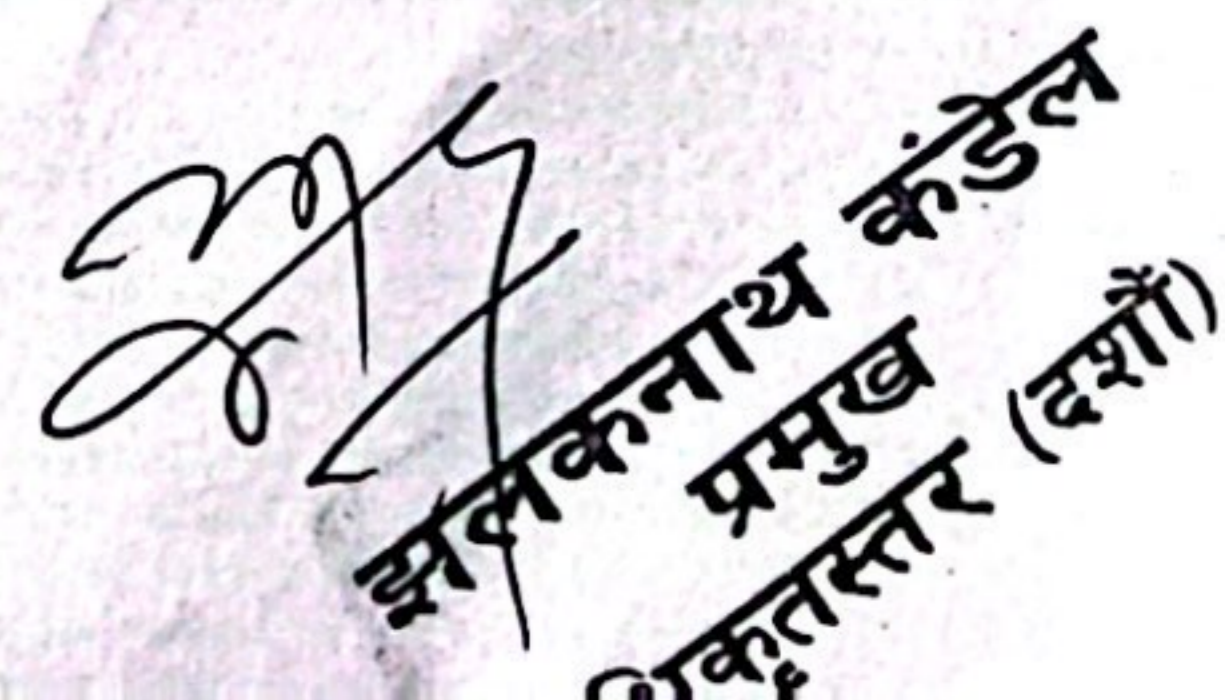 झलकनाथ कंडेल
प्रमुख
धिकृतस्तर (दशौं)